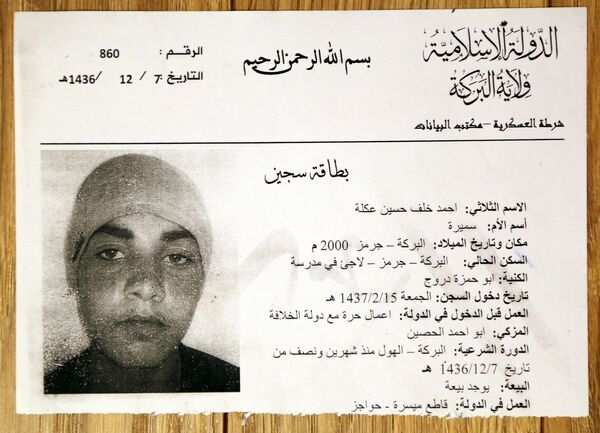 الدولة الإسلامية
ولاية البركة
شرطة العسكرية – مكتب البيانات
بسم الله الرحمن الرحيم
الرقم : 860
التاريخ : 7 / 12 / 1436هـ
بطاقة سجين
الاسم الثلاثي: احمد خلف حسين عكلة
أسم الأم: سميرة
مكان وتاريخ الميلاد: البركة – جرمز 2000 م
السكن الحالي: البركة – جرمز – لاجئ في مدرسة
الكنية: ابو حمزة دروج
تاريخ دخول السجن: الجمعة 1437/2/15 هـ
العمل قبل الدخول في الدولة: اعمال حرة مع دولة الخلافة
المزكي: ابو احمد الحصين
الدورة الشرعية: البركة – الهول منذ شهرين ونصف من
تاريخ 1436/12/7 هـ
البيعة: يوجد بيعة
العمل في الدولة: قاطع ميسرة - حواجز